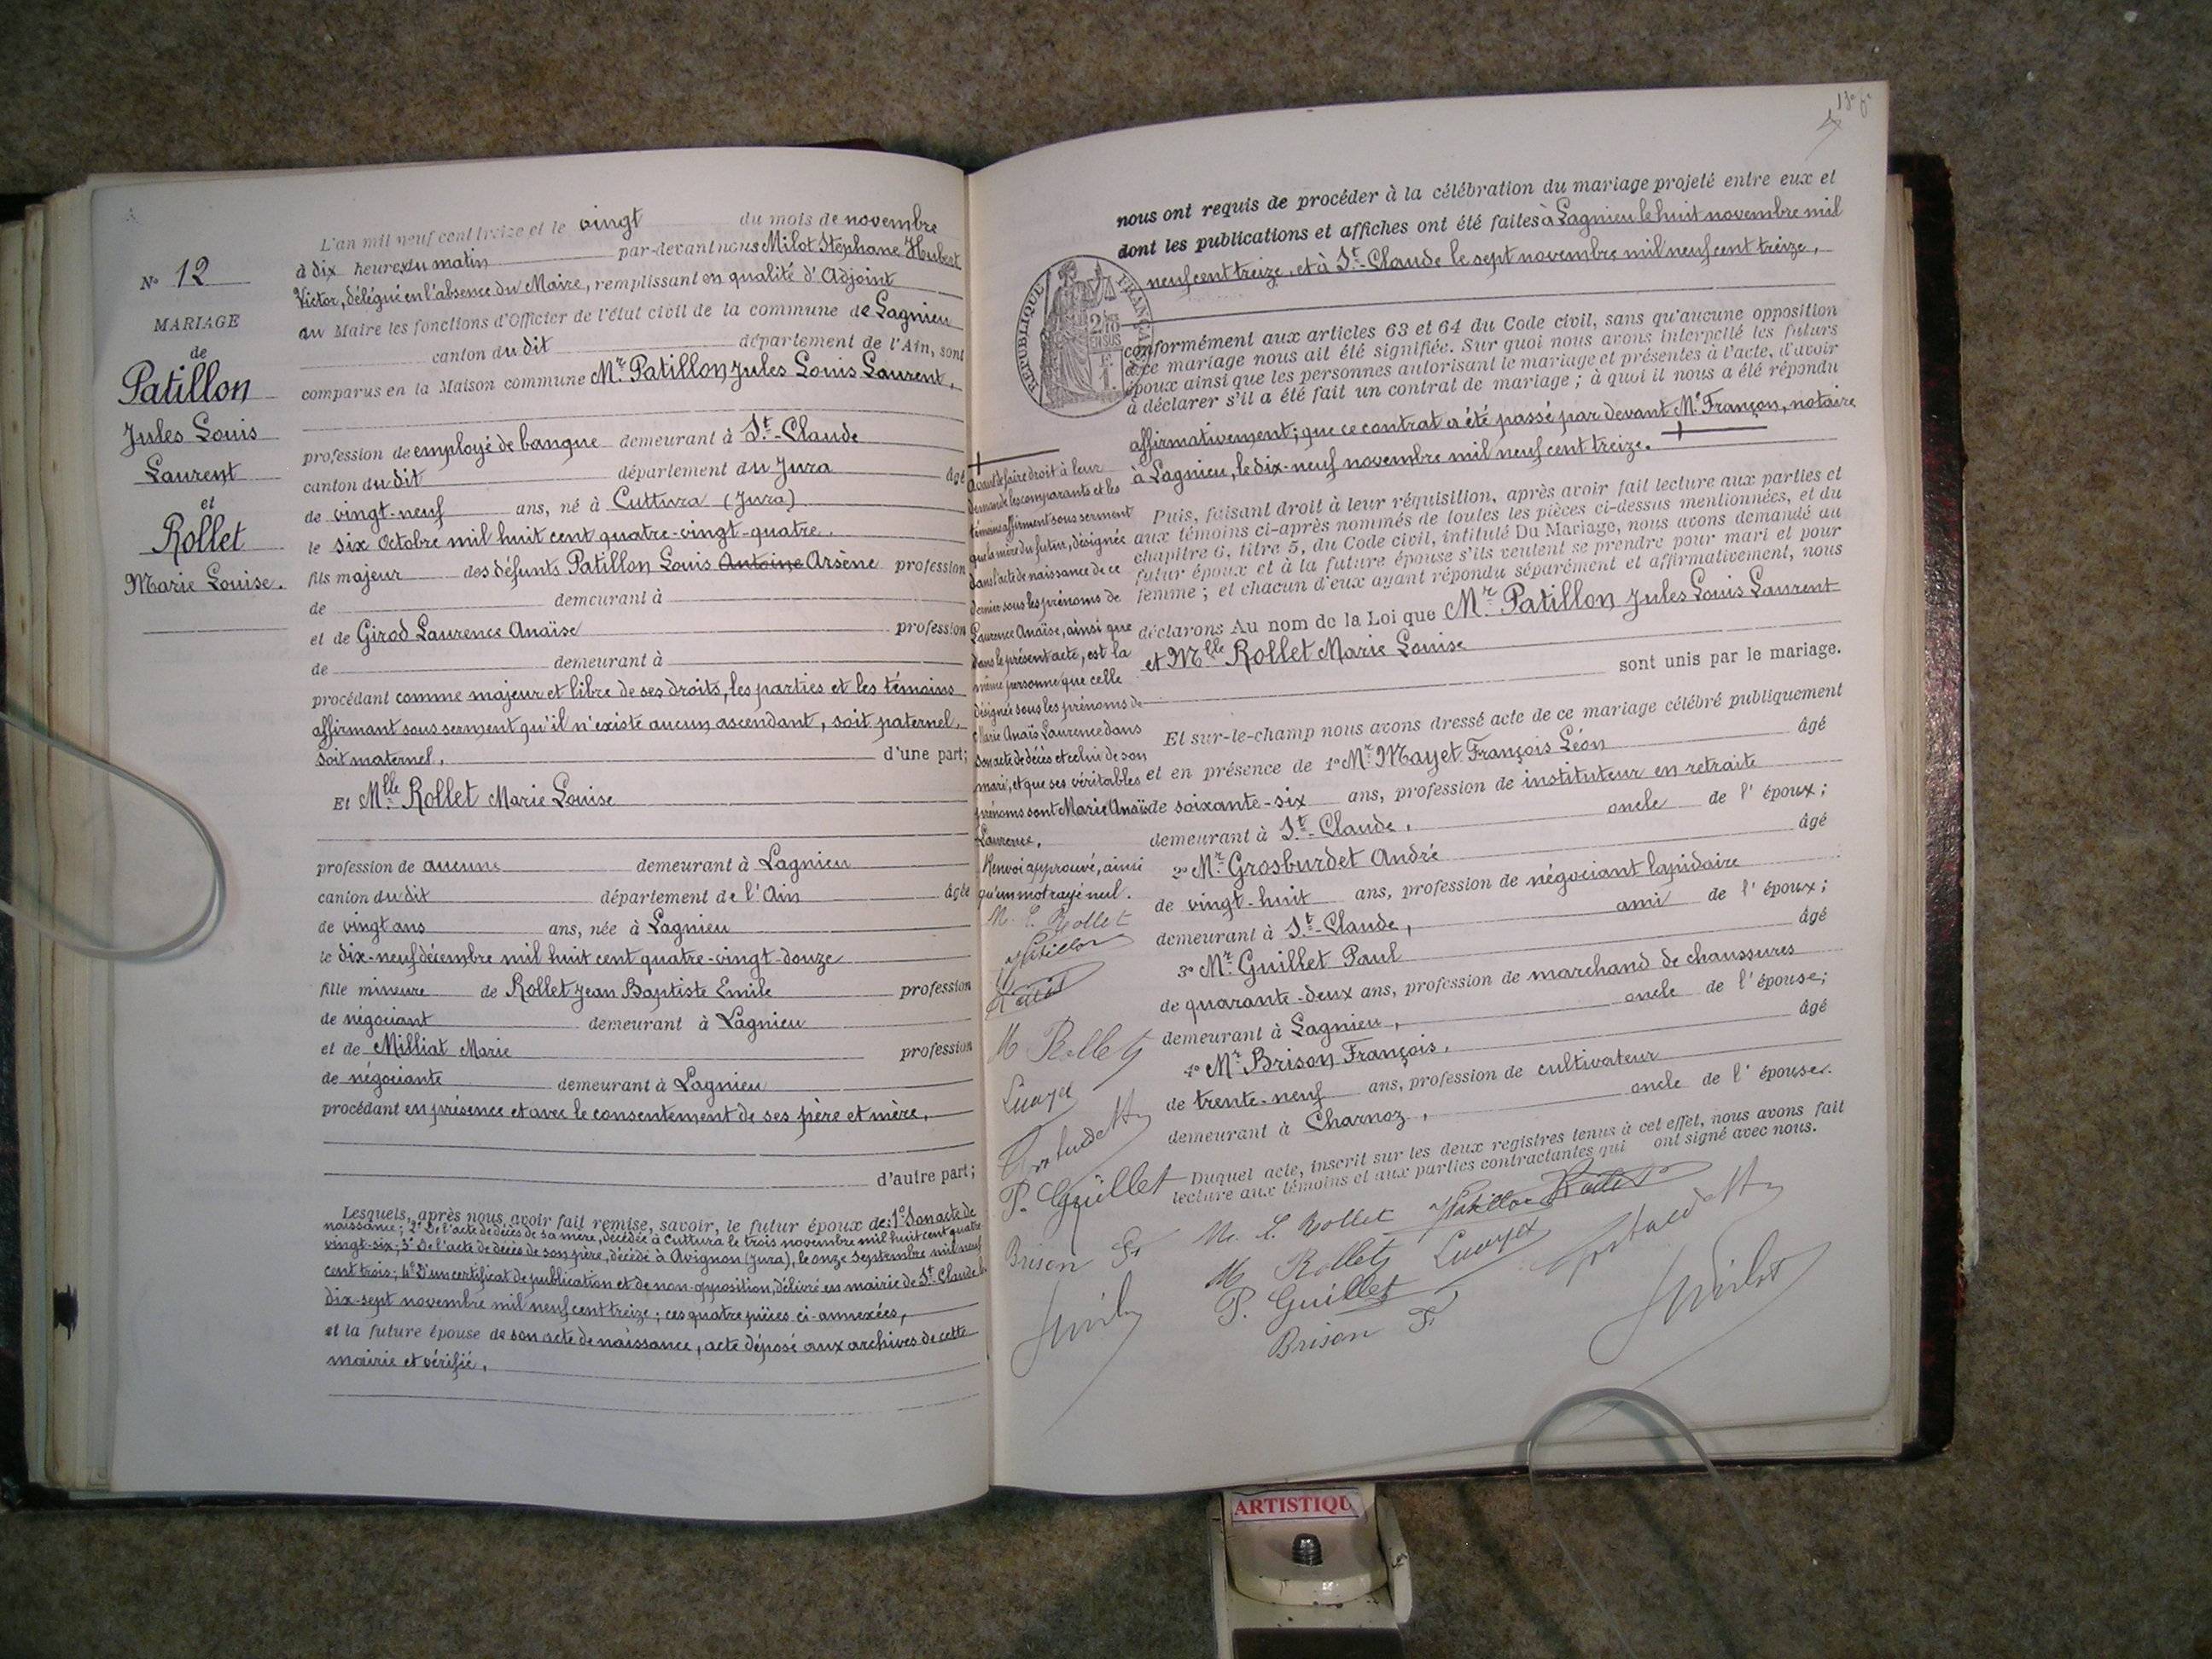 N° 12
MARIAGE
de
Patillon
Jules Louis
Laurent
et
Rollet
Marie Louise.
L'an mil neuf cent treize et le vingt du mois de novembre
à dix heures du matin par-devant nous Milot Stéphane Hubert
Victor, délégué en l'absence du Maire, remplissant en qualité d'Adjoint
au Maire les fonctions d'Officier de l'état civil de la commune de Lagnieu
canton du dit département de l'Ain, sont
comparus en la Maison commune Mr. Patillon Jules Louis Laurent,
profession de employé de banque demeurant à St-Claude
canton du dit département du Jura âgé
de vingt-neuf ans, né à Cuttura (Jura)
le six Octobre mil huit cent quatre-vingt-quatre.
fils majeur des défunts Patillon Louis Antoine Arsène profession
de demeurant à
et de Girod Laurence Anaïse profession
de demeurant à
procédant comme majeur et libre de ses droits, les parties et les témoins
affirmant sous serment qu'il n'existe aucun ascendant, soit paternel,
soit maternel, d'une part;
Et Mlle Rollet Marie Louise
profession de aucune demeurant à Lagnieu
canton du dit département de l'Ain âgée
de vingt ans ans, née à Lagnieu
le dix-neuf décembre mil huit cent quatre-vingt-douze
fille mineure de Rollet Jean Baptiste Emile profession
de négociant demeurant à Lagnieu
et de Milliat Marie profession
de négociante demeurant à Lagnieu
procédant en présence et avec le consentement de ses père et mère,
d'autre part;
Lesquels, après nous avoir fait remise, savoir, le futur époux de: 1° Son acte de
naissance; 2° De l'acte de décès de sa mère, décédée à Cuttura le trois novembre mil huit cent quatre
vingt-six; 3° De l'acte de décès de son père, décédé à Avignon (Jura), le onze septembre mil neuf
cent trois; 4° D'un certificat de publication et de non-opposition, délivré en mairie de St-Claude le
dix-sept novembre mil neuf cent treize; ces quatre pièces ci-annexées,
et la future épouse de son acte de naissance, acte déposé aux archives de cette
mairie et vérifié.
nous ont requis de procéder à la célébration du mariage projeté entre eux et
dont les publications et affiches ont été faites à Lagnieu le huit novembre mil
neuf cent treize, et à St-Claude le sept novembre mil neuf cent treize,
RÉPUBLIQUE FRANÇAISE
conformément aux articles 63 et 64 du Code civil, sans qu'aucune opposition
à ce mariage nous ait été signifiée. Sur quoi nous avons interpellé les futurs
époux ainsi que les personnes autorisant le mariage et présentes à l'acte, d'avoir
à déclarer s'il a été fait un contrat de mariage; à quoi il nous a été répondu
affirmativement; que ce contrat a été passé par devant Me François, notaire
à Lagnieu, le dix-neuf novembre mil neuf cent treize.
Puis, faisant droit à leur réquisition, après avoir fait lecture aux parties et
aux témoins ci-après nommés de toutes les pièces ci-dessus mentionnées, et du
chapitre 6, titre 5, du Code civil, intitulé Du Mariage, nous avons demandé au
futur époux et à la future épouse s'ils veulent se prendre pour mari et pour
femme; et chacun d'eux ayant répondu séparément et affirmativement, nous
déclarons Au nom de la Loi que Mr. Patillon Jules Louis Laurent
et Mlle Rollet Marie Louise
sont unis par le mariage.
Et sur-le-champ nous avons dressé acte de ce mariage célébré publiquement
et en présence de 1° Mr. Mayet François Léon âgé
de soixante-six ans, profession de instituteur en retraite
demeurant à St-Claude, oncle de l'époux;
2° Mr. Grosburdet André âgé
de vingt-huit ans, profession de négociant lapidaire
demeurant à St-Claude, ami de l'époux;
3° Mr. Guillet Paul âgé
de quarante-deux ans, profession de marchand de chaussures
demeurant à Lagnieu, oncle de l'épouse;
4° Mr. Brison François, âgé
de trente-neuf ans, profession de cultivateur
demeurant à Charnoz, oncle de l'épouse.
Duquel acte, inscrit sur les deux registres tenus à cet effet, nous avons fait
lecture aux témoins et aux parties contractantes qui ont signé avec nous.
M. L. Rollet Patillon Rollet
M Rollet
P. Guillet
Brison F
Milot
Avant de faire droit à leur
demande les comparants et les
témoins affirment sous serment
que la mère du futur, désignée
dans l'acte de naissance de ce
dernier sous les prénoms de
Laurence Anaïse, ainsi que
dans le présent acte, est la
même personne que celle
désignée sous les prénoms de
Marie Anaïs Laurence dans
son acte de décès et celui de son
mari, et que ses véritables
prénoms sont Marie Anaïs
Laurence.
Renvoi approuvé, ainsi
qu'un mot rayé nul.
M. L. Rollet
Patillon
Rollet
M Rollet
P. Guillet
Brison F
ARTISTIQU